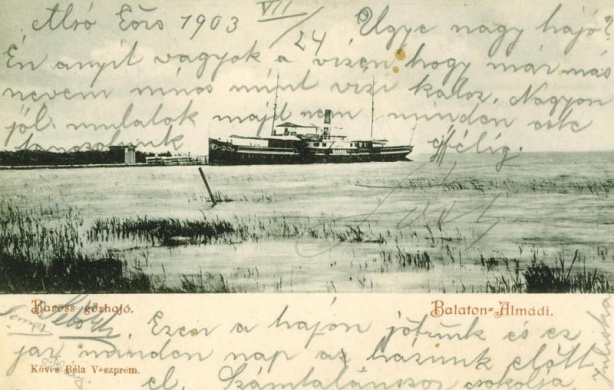 Alsó Eörs 1903 VII/24 Ugye nagy hajó?
Én annyit vagyok a vizen hogy már más
nevem nincs mint vizi kaloz. Nagyon
jól mulatok majd nem minden este
éjfélig.
Baross gőzhajó.
Balaton-Almádi.
Ezen a hajón jötünk és ez
jár minden nap az házunk előtt
Köves Béla Veszprém.
el. Számtalanszor csókolja